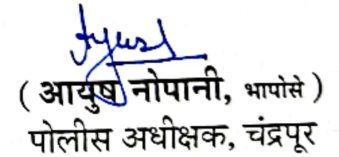 ( आयुष नोपानी, भापोसे )
पोलीस अधीक्षक, चंद्रपूर